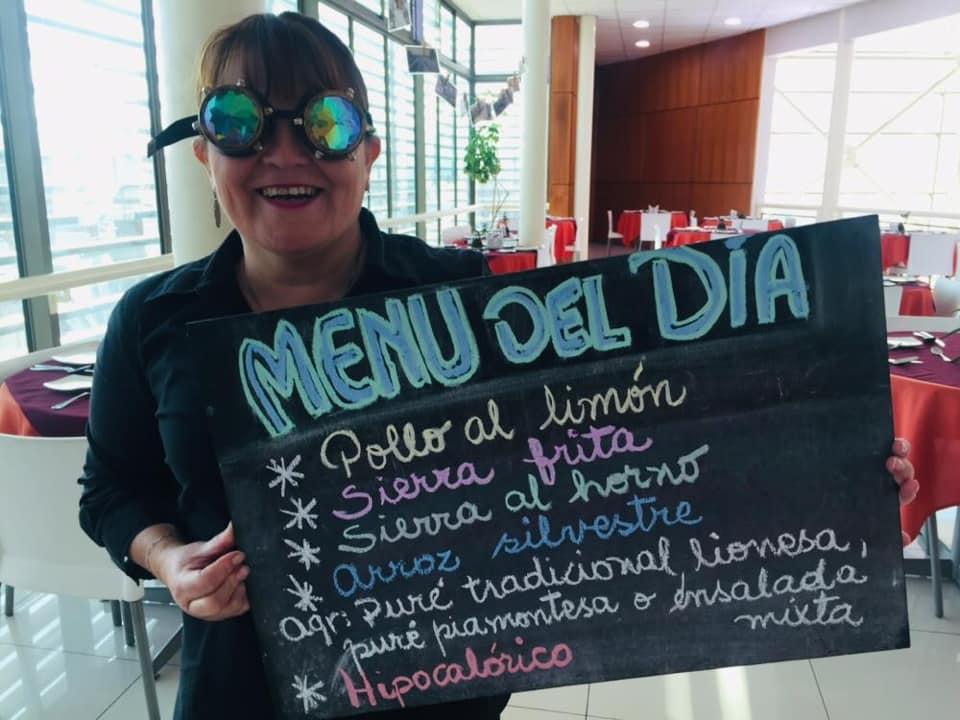 MENU DEL DÍA
* Pollo al limón
* Sierra frita
* Sierra al horno
* arroz silvestre
agr: Puré tradicional lionesa,
puré piamontesa o énsalada
mixta
* Hipocalórico